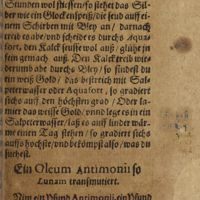 Stunden wol fliessen/ so stehet das Sil-
ber wie ein Glockenspeiß/ die seud auff ei-
nem Scherben mit Bley an / darnach
treib es abe/ vnd scheid es durchs Aqua-
fort, den Kalck seusse wol auß/ glühe jn
sein gemach auß. Den Kalck treib wie-
derumb ab durchs Bley / so findest du
ein weiß Gold/ das bestreich mit Sal-
peterwasser oder Aquafort, so gradiert
sichs auff den höchsten grad/ Oder la-
mier das weisse Gold/ vnd lege es in ein
Salpeterwasser/ laß es auff linder wär-
me einen Tag stehen / so gradiert sichs
auffs höchste/ vnd bekömpst also/ was du
suchest.
Ein Oleum Antimonii so
Lunam transmutiert.
Nim ein Pfund Antimonii, ein Pfund